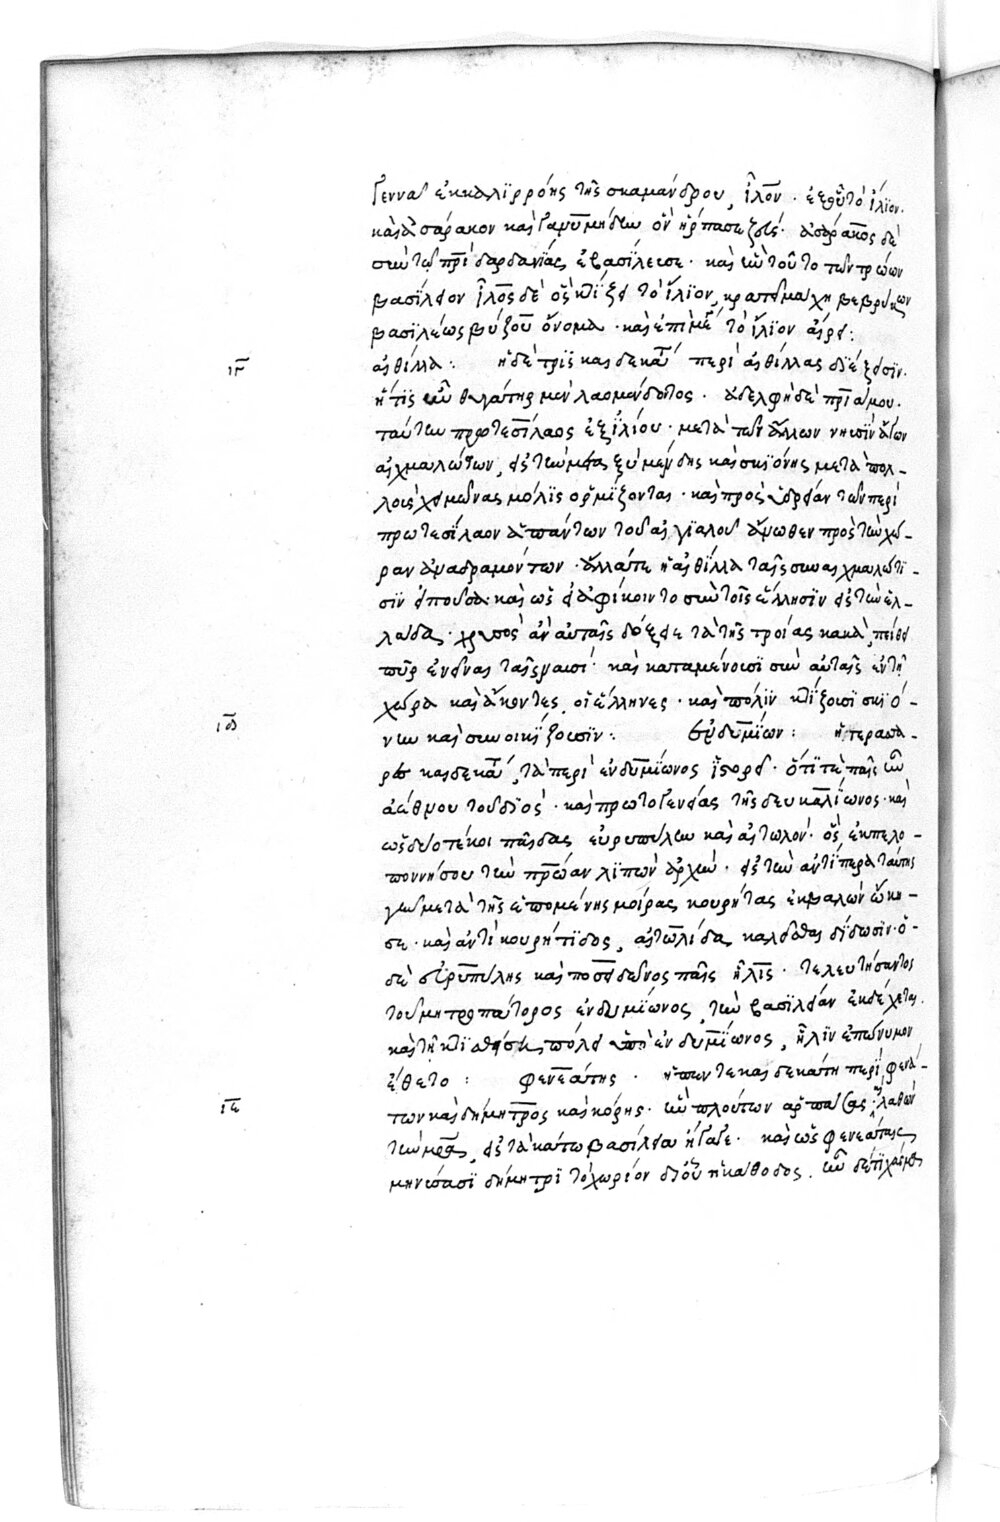 γεννᾶ ἐκ καλιρρόης τῆς σκαμάνδρου, ἶλον. ἐξ οὗ τὸ ἴλιον.
καὶ ἀσάρακον καὶ γανυμήδην ὃν ἥρπασε ζεύς. ἀσάρακος δὲ
σὺν τῷ πρὶ δαρδανίας ἐβασίλευσε. καὶ ἦν τοῦτο τῶν τρώων
βασίλειον ἶλος δὲ ὃς κτίζει τὸ ἴλιον, κρατεῖ μάχῃ βεβρύκων
βασιλέως βύζου ὄνομα. καὶ ἐπὶ μέγα τὸ ἴλιον αἴρει:
ιγ αἴθιλλα: ἡ δὲ τρὶς καὶ δεκάτη περὶ αἰθίλλας διέξεισιν.
ἥτις ἦν θυγάτηρ μὲν λαομέδοντος. ἀδελφὴ δὲ πριάμου.
ταύτην πρωτεσίλαος ἐξ ἰλίου. μετὰ τῶν ἄλλων νησὶν ἄγων
αἰχμαλώτων, εἰς τὴν μεταξὺ μένδης καὶ σκιόνης μετὰ πολ-
λοὺς χειμῶνας μόλις ὁρμίζονται. καὶ πρὸς ὑδρείαν τῶν περὶ
πρωτεσίλαον ἁπάντων τοῦ αἰγιαλοῦ ἄνωθεν πρὸς τὴν χώ-
ραν ἀναδραμόντων. ἄλλα τε ἡ αἴθιλλα ταῖς συναιχμαλώτι-
σιν εἰποῦσα. καὶ ὡς εἰ ἀφίκοιντο σὺν τοῖς ἕλλησιν εἰς τὴν ἑλ-
λάδα. χρυσὸς ἂν αὐταῖς δόξειε τὰ τῆς τροίας κακά, πείθει
πῦρ ἐνεῖναι ταῖς ναυσί. καὶ καταμένουσι σὺν αὐταῖς ἐν τῇ
χώρᾳ καὶ ἄκοντες, οἱ ἕλληνες. καὶ πόλιν κτίζουσι σκιό-
ιδ νην καὶ συνοικίζουσιν: ἐνδυμίων: ἡ τεσσα-
ρὶς καὶ δεκάτη, τὰ περὶ ἐνδυμίωνος ἱστορεῖ. ὅτί τε παῖς ἦν
ἀεθλίου τοῦ διός. καὶ πρωτογενείας τῆς δευκαλίωνος. καὶ
ὡς δύο τέκοι παῖδας εὐρυπύλην καὶ αἰτωλόν. ὃς ἐκ πελο-
ποννήσου τὴν πρώαν λιπὼν ἀρχήν. εἰς τὴν ἀντιπέρα ταύτης
γῆν μετὰ τῆς ἑπομένης μοίρας κουρῆτας ἐκβαλὼν ᾤκη-
σε. καὶ ἀντὶ κουρήτιδος, αἰτωλίδα καλεῖσθαι δίδωσιν. ὁ
δὲ εὐρυπύλης καὶ ποσειδῶνος παῖς ἦλις. τελευτήσαντος
τοῦ μητροπάτορος ἐνδυμίωνος, τὴν βασιλείαν ἐκδέχεται.
καὶ τῇ κτισθείσῃ πόλει ὑπὸ ἐνδυμίωνος, ἦλιν ἐπώνυμον
ἔθετο: φενεάτης. ἡ πεντεκαιδεκάτη περὶ φενεα-
ιε των καὶ δήμητρος καὶ κόρης. ἣν πλούτων ἁρπάσας, λαθὼν
τὴν μητέρα, εἰς τὰ κάτω βασίλεια ἤγαγε. καὶ ὡς φενεάταις
μηνύσασι δήμητρι τὸ χωρίον δι' οὗ ἡ κάθοδος. ἦν δέ τι χάσμα